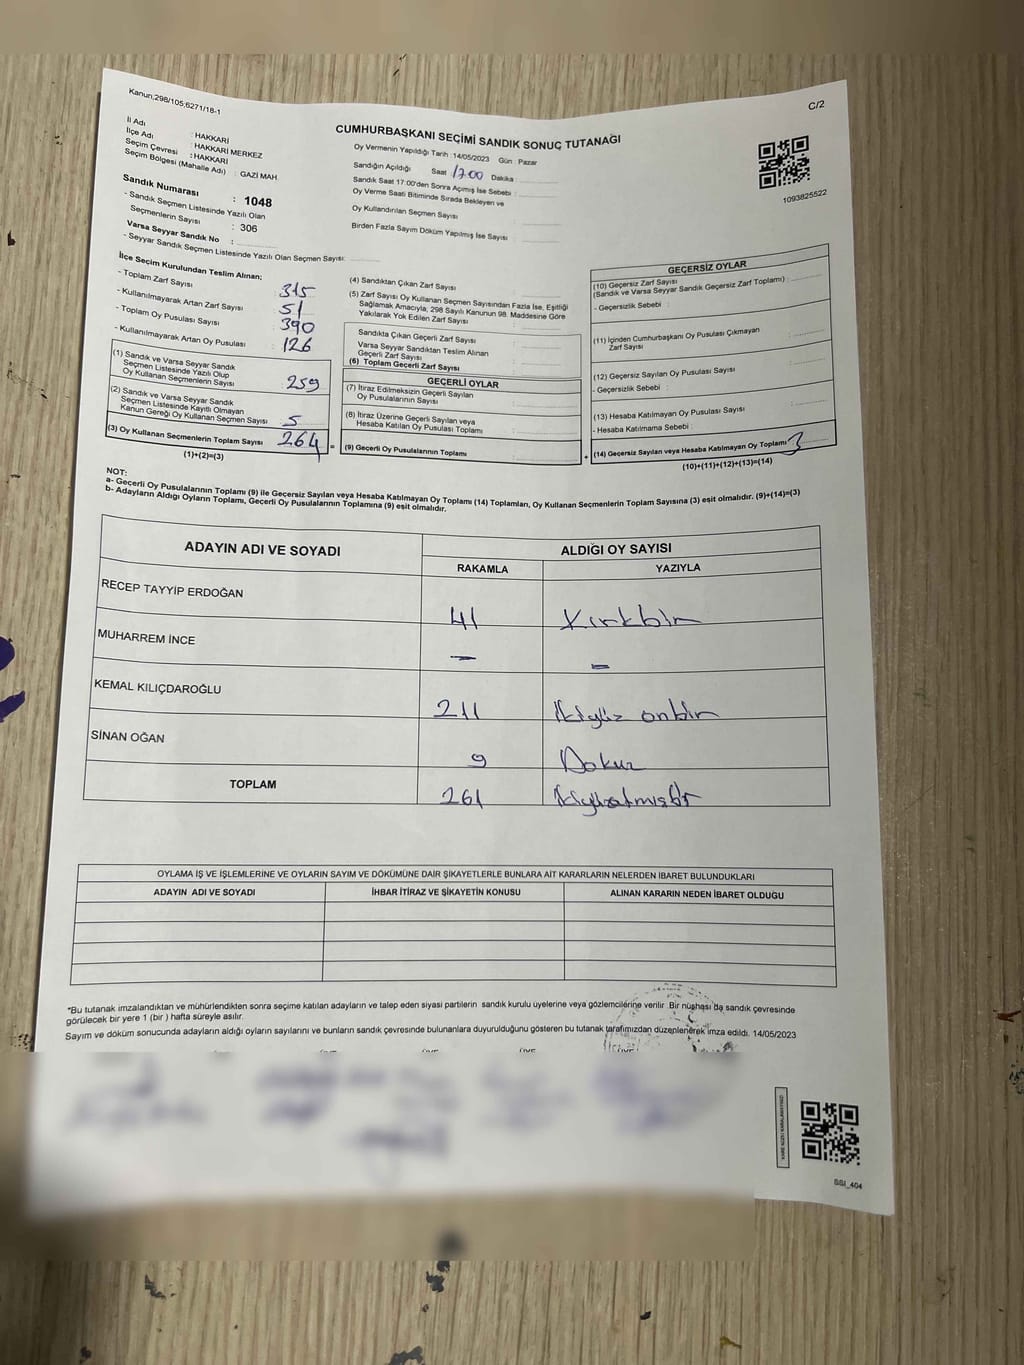 Kanun;298/105;6271/18-1
C/2
CUMHURBAŞKANI SEÇİMİ SANDIK SONUÇ TUTANAĞI
İl Adı : HAKKARİ
İlçe Adı : HAKKARİ MERKEZ
Seçim Çevresi : HAKKARİ
Seçim Bölgesi (Mahalle Adı) : GAZİ MAH.
Sandık Numarası : 1048
- Sandık Seçmen Listesinde Yazılı Olan
Seçmenlerin Sayısı : 306
Varsa Seyyar Sandık No :
- Seyyar Sandık Seçmen Listesinde Yazılı Olan Seçmen Sayısı:
Oy Vermenin Yapıldığı Tarih : 14/05/2023 Gün : Pazar
Sandığın Açıldığı Saat 17.00 Dakika :
Sandık Saat 17.00'den Sonra Açılmış İse Sebebi :
Oy Verme Saati Bitiminde Sırada Bekleyen ve
Oy Kullandırılan Seçmen Sayısı :
Birden Fazla Sayım Döküm Yapılmış İse Sayısı :
1093825522
İlçe Seçim Kurulundan Teslim Alınan:
- Toplam Zarf Sayısı : 315
- Kullanılmayarak Artan Zarf Sayısı : 51
- Toplam Oy Pusulası Sayısı : 390
- Kullanılmayarak Artan Oy Pusulası : 126
(1) Sandık ve Varsa Seyyar Sandık
Seçmen Listesinde Yazılı Olup
Oy Kullanan Seçmenlerin Sayısı : 259
(2) Sandık ve Varsa Seyyar Sandık
Seçmen Listesinde Kayıtlı Olmayan
Kanun Gereği Oy Kullanan Seçmen Sayısı : 5
(3) Oy Kullanan Seçmenlerin Toplam Sayısı 264 =
(1)+(2)=(3)
(4) Sandıktan Çıkan Zarf Sayısı :
(5) Zarf Sayısı Oy Kullanan Seçmen Sayısından Fazla İse, Eşitliği
Sağlamak Amacıyla, 298 Sayılı Kanunun 98. Maddesine Göre
Yakılarak Yok Edilen Zarf Sayısı :
Sandıkta Çıkan Geçerli Zarf Sayısı :
Varsa Seyyar Sandıktan Teslim Alınan
Geçerli Zarf Sayısı :
(6) Toplam Geçerli Zarf Sayısı :
GEÇERLİ OYLAR
(7) İtiraz Edilmeksizin Geçerli Sayılan
Oy Pusulalarının Sayısı :
(8) İtiraz Üzerine Geçerli Sayılan veya
Hesaba Katılan Oy Pusulası Toplamı :
(9) Geçerli Oy Pusulalarının Toplamı +
GEÇERSİZ OYLAR
(10) Geçersiz Zarf Sayısı
(Sandık ve Varsa Seyyar Sandık Geçersiz Zarf Toplamı) :
- Geçersizlik Sebebi :
(11) İçinden Cumhurbaşkanı Oy Pusulası Çıkmayan
Zarf Sayısı :
(12) Geçersiz Sayılan Oy Pusulası Sayısı :
- Geçersizlik Sebebi :
(13) Hesaba Katılmayan Oy Pusulası Sayısı :
- Hesaba Katılmama Sebebi :
(14) Geçersiz Sayılan veya Hesaba Katılmayan Oy Toplamı 3
(10)+(11)+(12)+(13)=(14)
NOT:
a- Geçerli Oy Pusulalarının Toplamı (9) ile Geçersiz Sayılan veya Hesaba Katılmayan Oy Toplamı (14) Toplamları, Oy Kullanan Seçmenlerin Toplam Sayısına (3) eşit olmalıdır. (9)+(14)=(3)
b- Adayların Aldığı Oyların Toplamı, Geçerli Oy Pusulalarının Toplamına (9) eşit olmalıdır.
ADAYIN ADI VE SOYADI ALDIĞI OY SAYISI
RAKAMLA YAZIYLA
RECEP TAYYİP ERDOĞAN 41 Kırkbir
MUHARREM İNCE – –
KEMAL KILIÇDAROĞLU 211 İkiyüz onbir
SİNAN OĞAN 9 Dokuz
TOPLAM 261 İkiyüzatmışbir
OYLAMA İŞ VE İŞLEMLERİNE VE OYLARIN SAYIM VE DÖKÜMÜNE DAİR ŞİKAYETLERLE BUNLARA AİT KARARLARIN NELERDEN İBARET BULUNDUKLARI
ADAYIN ADI VE SOYADI İHBAR İTİRAZ VE ŞİKAYETİN KONUSU ALINAN KARARIN NEDEN İBARET OLDUĞU
*Bu tutanak imzalandıktan ve mühürlendikten sonra seçime katılan adayların ve talep eden siyasi partilerin sandık kurulu üyelerine veya gözlemcilerine verilir. Bir nüshası da sandık çevresinde
görülecek bir yere 1 (bir ) hafta süreyle asılır.
Sayım ve döküm sonucunda adayların aldığı oyların sayılarını ve bunların sandık çevresinde bulunanlara duyurulduğunu gösteren bu tutanak tarafımızdan düzenlenerek imza edildi. 14/05/2023
KARE KODU KARALAMAYINIZ!
SSI_404